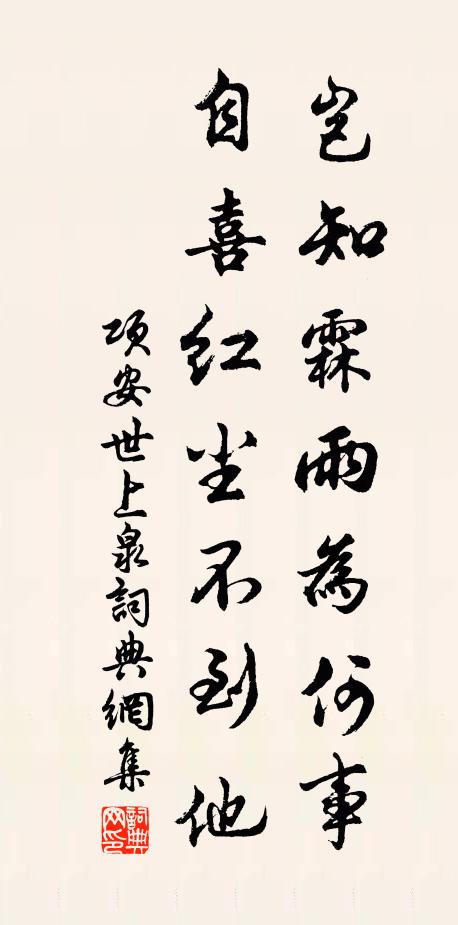 豈知霖雨為何事
自喜紅尘不到他
項安世上泉詞典網集
詞典网印